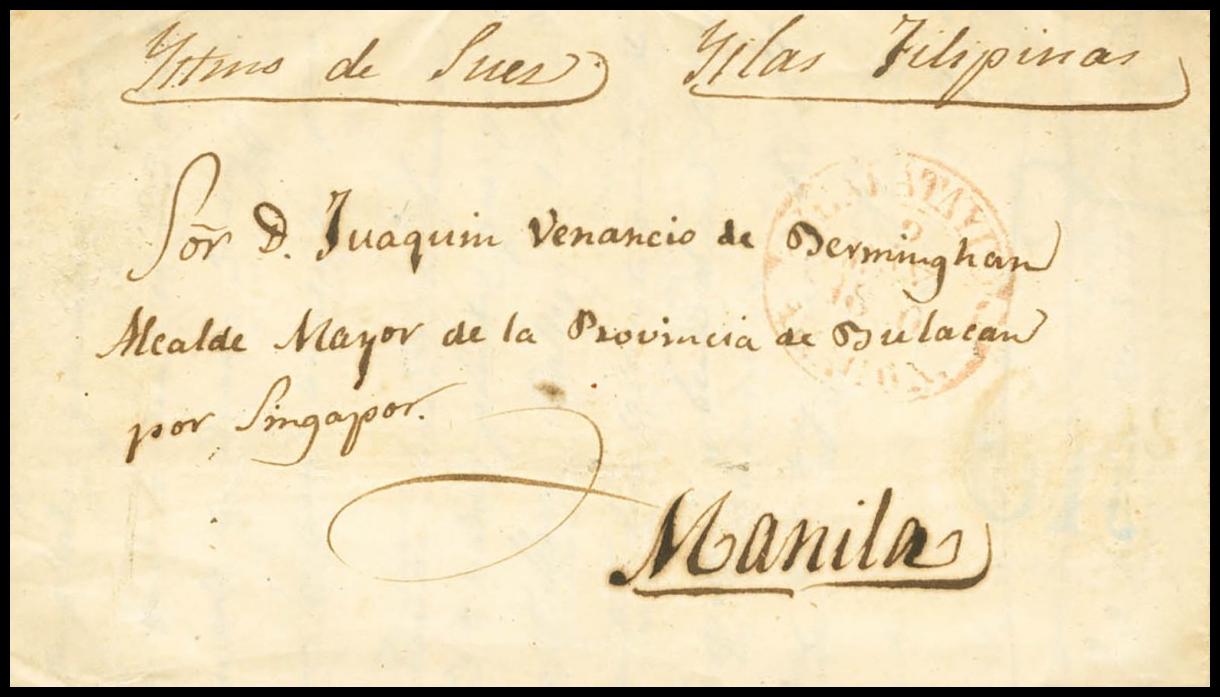 Ystmo de Sues Yslas Filipinas
Sōr D. Juaquin Venancio de Berminghan
Alcalde Mayor de la Provincia de Bulacan
por Singapor.
Manila